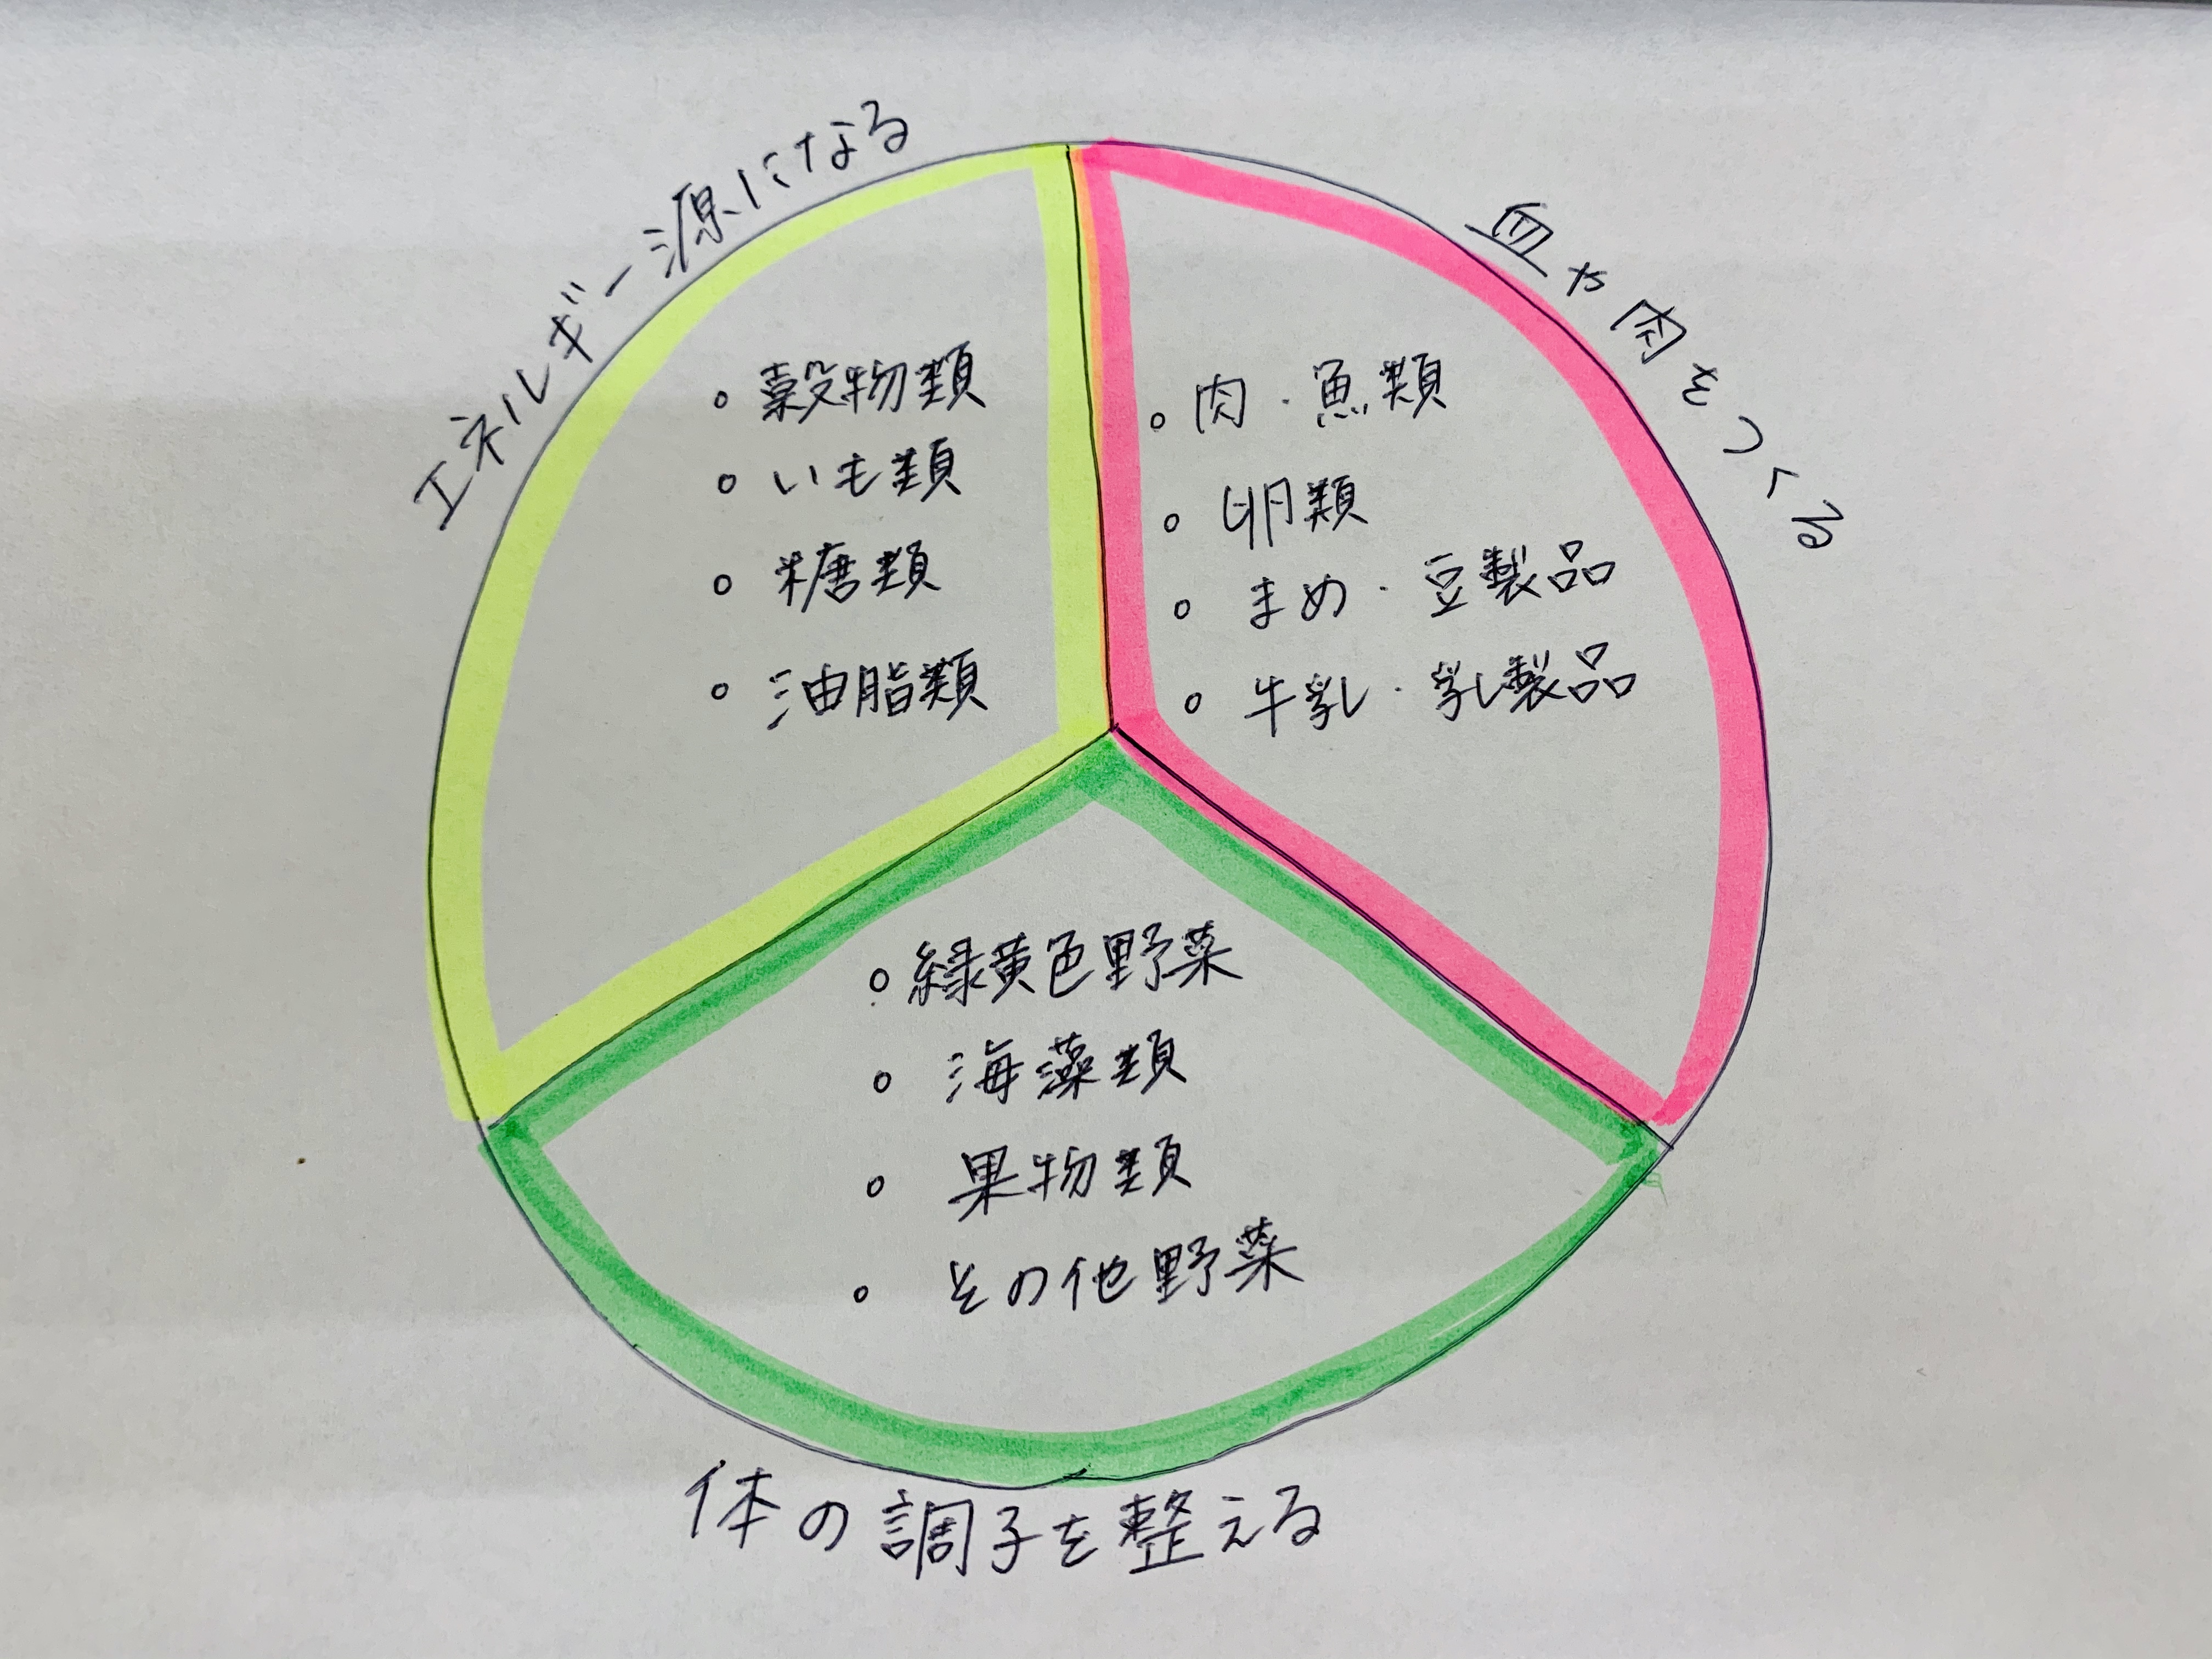 エネルギー源になる
◦ 穀物類
◦ いも類
◦ 糖類
◦ 油脂類
血や肉をつくる
◦ 肉・魚類
◦ 卵類
◦ まめ・豆製品
◦ 牛乳・乳製品
◦ 緑黄色野菜
◦ 海藻類
◦ 果物類
◦ その他野菜
体の調子を整える